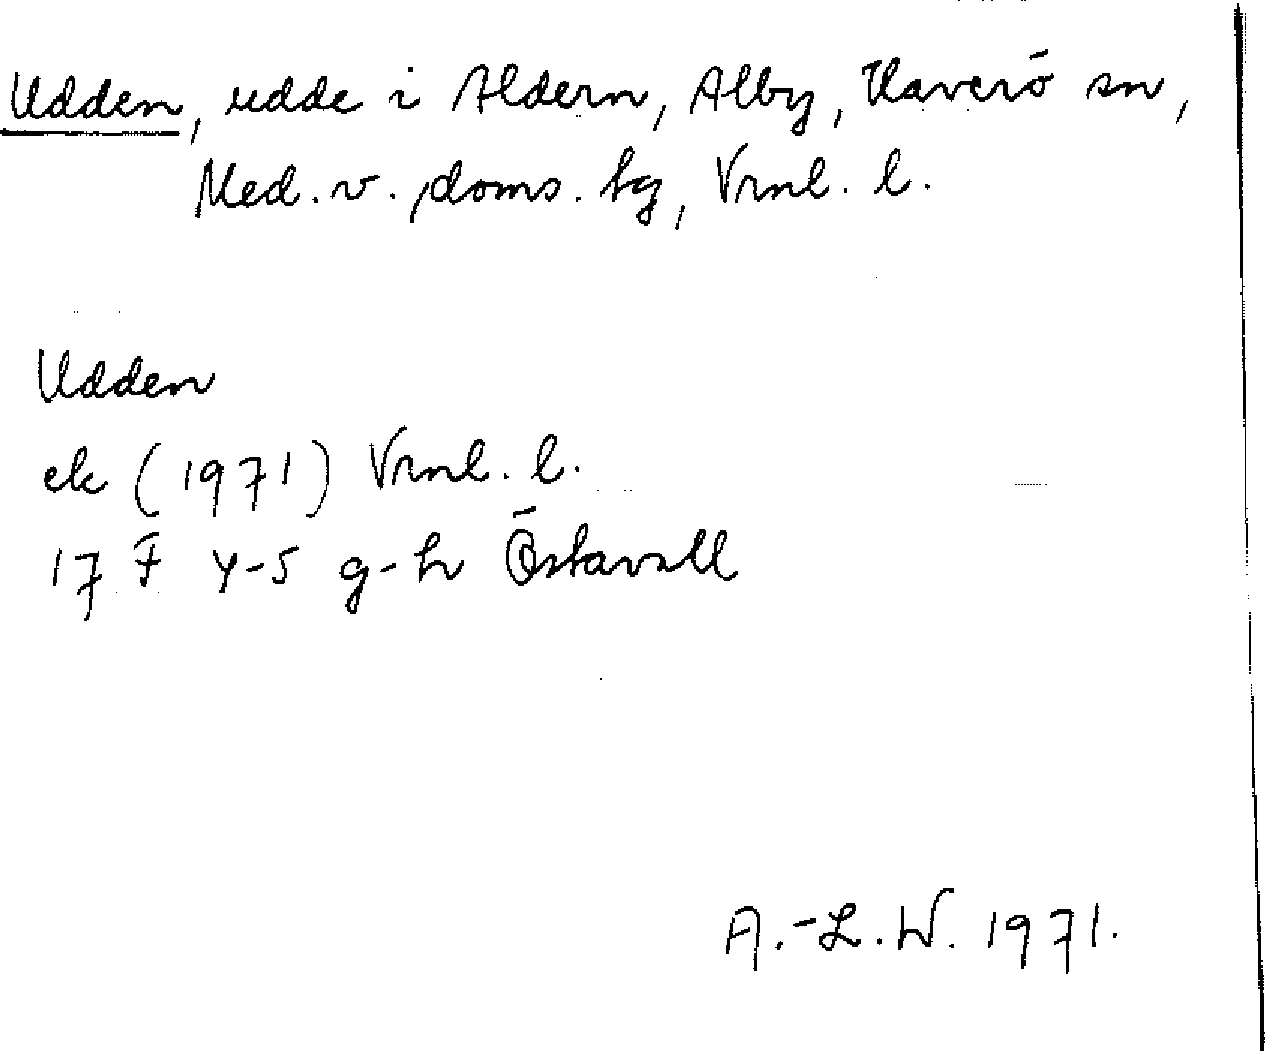 Udden, udde i Aldern, Alby, Haverö sn,
Med. v. doms. tg, Vrnl. l.
Udden
ek (1971) Vrnl. l.
17 F 4-5 g-h Östavall
A.-L.W. 1971.